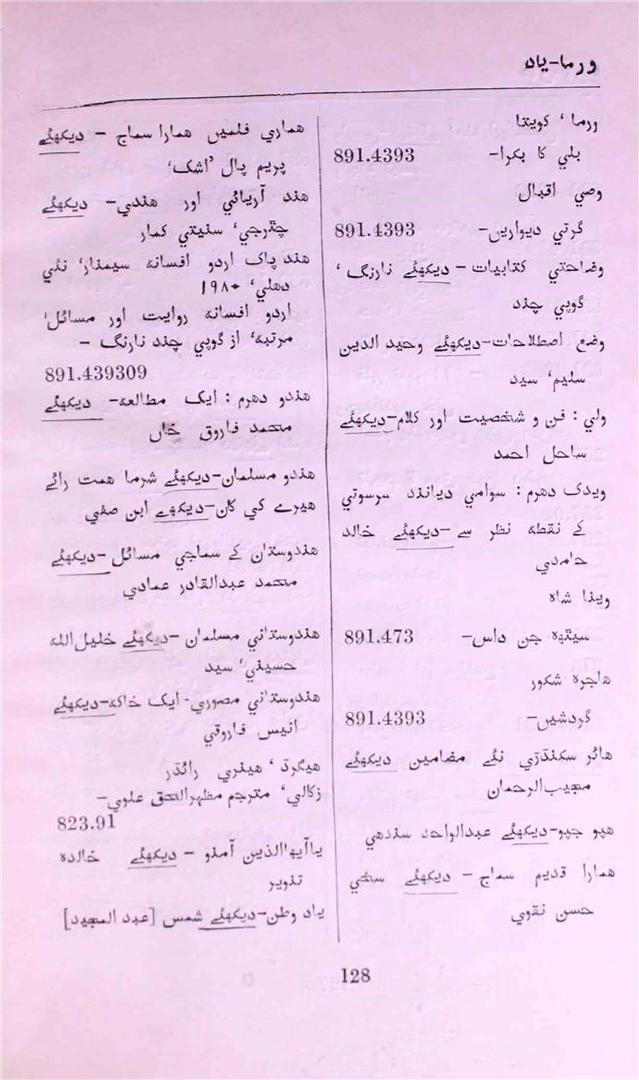 ورما-یاد
ورما، کویتا
بلی کا بکرا- 891.4393
وصی اقبال
گرتی دیواریں- 891.4393
وضاحتی کتابیات-دیکھئے نارنگ،
گوپی چند
وضع اصطلاحات-دیکھئے وحید الدین
سلیم، سید
ولی : فن و شخصیت اور کلام-دیکھئے
ساحل احمد
ویدک دھرم : سوامی دیانند سرسوتی
کے نقطہ نظر سے -دیکھئے خالد
حامدی
وینا شاہ
سیتھہ جن داس- 891.473
ھاجرہ شکور
گردشیں- 891.4393
ھائر سکنڈری نئے مضامین دیکھئے
مجیب الرحمان
ھپو جپو-دیکھئے عبدالواحد سندھی
ھمارا قدیم سماج - دیکھئے سخی
حسن نقوی
ھماری فلمیں ھمارا سماج - دیکھئے
پریم پال ’اشک‘
ھند آریائی اور ھندی- دیکھئے
چٹرجی، سنیتی کمار
ھند پاک اردو افسانہ سیمنار، نئی
دھلی، ۱۹۸۰
اردو افسانہ روایت اور مسائل،
مرتبہ، از گوپی چند نارنگ -
891.439309
ھندو دھرم : ایک مطالعہ- دیکھئے
محمد فاروق خاں
ھندو مسلمان-دیکھئے شرما ھمت رائے
ھیرے کی کان-دیکھے ابن صفی
ھندوستان کے سماجی مسائل -دیکھئے
محمد عبدالقادر عمادی
ھندوستانی مسلمان -دیکھئے خلیل اللہ
حسینی، سید
ھندوستانی مصوری- ایک خاکہ-دیکھئے
انیس فاروقی
ھیگرڈ، ھینری رائڈر
زکالی، مترجم مظہرالحق علوی-
823.91
یاآیھاالذین آمنو - دیکھئے خالدہ
تنویر
یاد وطن-دیکھئے شمس [عبد المجید]
128